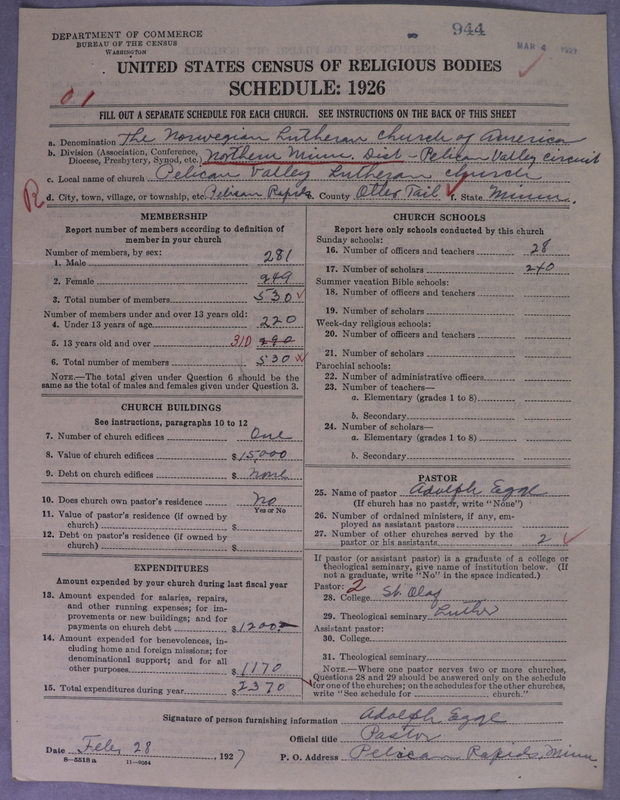 DEPARTMENT OF COMMERCE
BUREAU OF THE CENSUS
WASHINGTON
944
MAR 4 1927
UNITED STATES CENSUS OF RELIGIOUS BODIES
SCHEDULE: 1926
01
FILL OUT A SEPARATE SCHEDULE FOR EACH CHURCH. SEE INSTRUCTIONS ON THE BACK OF THIS SHEET
a. Denomination The Norwegian Lutheran Church of America
b. Division (Association, Conference, Diocese, Presbytery, Synod, etc.) Northern Minn. Dist - Pelican Valley Circuit
c. Local name of church Pelican Valley Lutheran Church
R d. City, town, village, or township, etc. Pelican Rapids e. County Otter Tail f. State Minn.
MEMBERSHIP
Report number of members according to definition of
member in your church
Number of members, by sex:
1. Male 281
2. Female 249
3. Total number of members 530
Number of members under and over 13 years old:
4. Under 13 years of age 220
5. 13 years old and over 310 290
6. Total number of members 530
NOTE.—The total given under Question 6 should be the
same as the total of males and females given under Question 3.
CHURCH BUILDINGS
See instructions, paragraphs 10 to 12
7. Number of church edifices One
8. Value of church edifices $15,000
9. Debt on church edifices $ None
10. Does church own pastor's residence No
Yes or No
11. Value of pastor's residence (if owned by
church) $
12. Debt on pastor's residence (if owned by
church) $
EXPENDITURES
Amount expended by your church during last fiscal year
13. Amount expended for salaries, repairs,
and other running expenses; for im-
provements or new buildings; and for
payments on church debt $1200.-
14. Amount expended for benevolences, in-
cluding home and foreign missions; for
denominational support; and for all
other purposes. $1170
15. Total expenditures during year $2370
CHURCH SCHOOLS
Report here only schools conducted by this church
Sunday schools:
16. Number of officers and teachers 28
17. Number of scholars 240
Summer vacation Bible schools:
18. Number of officers and teachers
19. Number of scholars
Week-day religious schools:
20. Number of officers and teachers
21. Number of scholars
Parochial schools:
22. Number of administrative officers
23. Number of teachers—
a. Elementary (grades 1 to 8)
b. Secondary
24. Number of scholars—
a. Elementary (grades 1 to 8)
b. Secondary
PASTOR
25. Name of pastor Adolph Egge
(If church has no pastor, write "None")
26. Number of ordained ministers, if any, em-
ployed as assistant pastors
27. Number of other churches served by the
pastor or his assistants 2
If pastor (or assistant pastor) is a graduate of a college or
theological seminary, give name of institution below. (If
not a graduate, write "No" in the space indicated.)
Pastor: 2
28. College St. Olaf
29. Theological seminary Luther
Assistant pastor:
30. College
31. Theological seminary
NOTE.—Where one pastor serves two or more churches,
Questions 28 and 29 should be answered only on the schedule
for one of the churches; on the schedules for the other churches,
write "See schedule for church."
Signature of person furnishing information Adolph Egge
Official title Pastor
Date Feby 28 1927 P. O. Address Pelican Rapids, Minn.
8—5518 a 11—9064